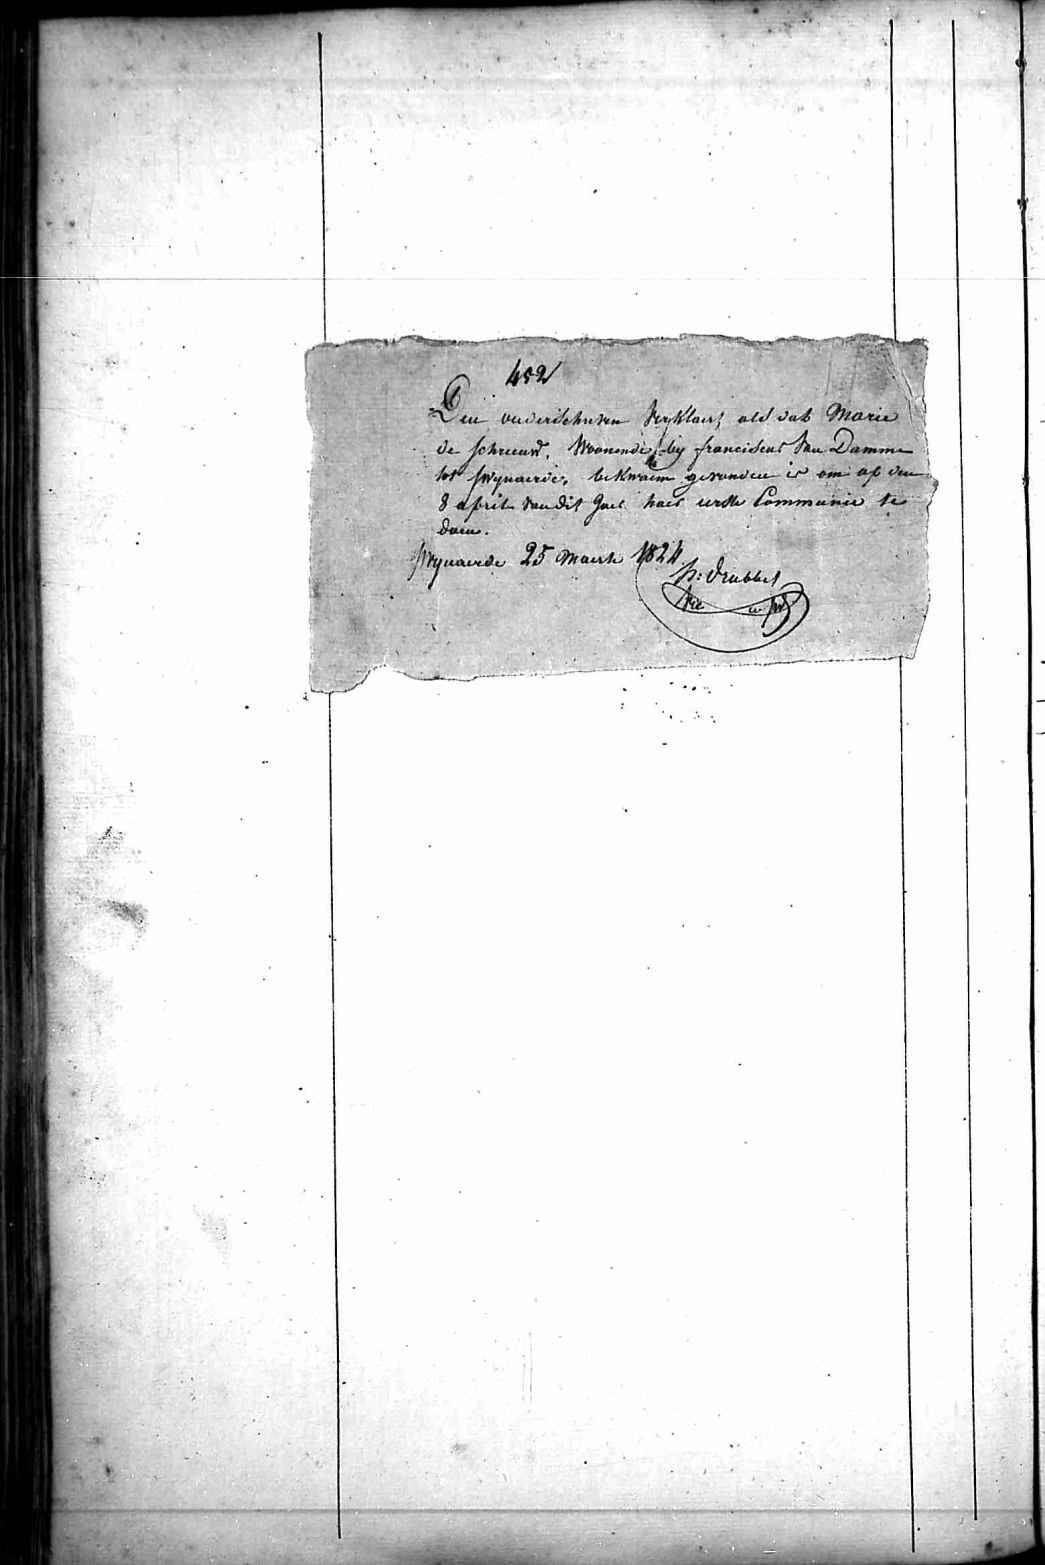 452
Den onderschreven verklaert als dat Marie
de schreeuw, Woonende by franciscus Van Damme
tot swynaerde, bekwaem gevonden is om op den
8 april van dit Jaer haer eerste Communie te
doen.
Swynaerde 25 Maerte 1824
p: Drubbel